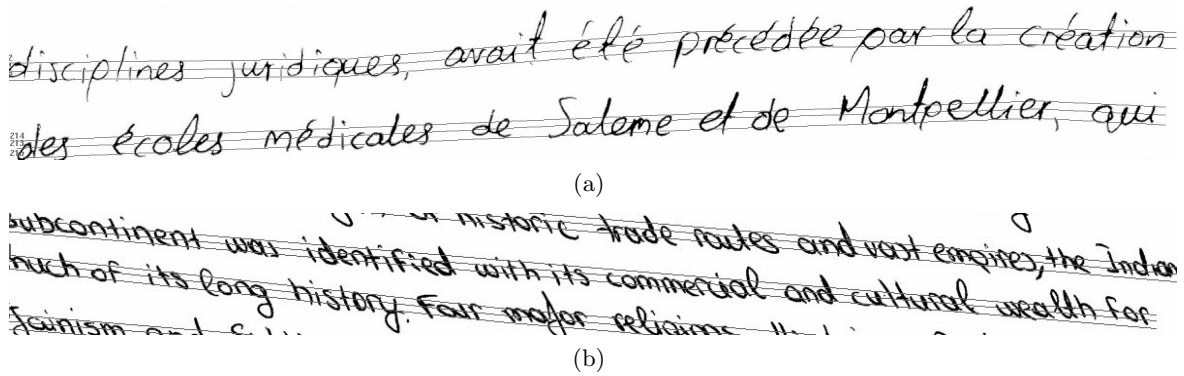 disciplines juridiques, avait été précédée par la création
214
des écoles médicales de Saleme et de Montpellier, qui
(a)
historic trade routes and vast empires, the Indian
subcontinent was identified with its commercial and cultural wealth for
much of its long history. Four major religions
Jainism and
(b)